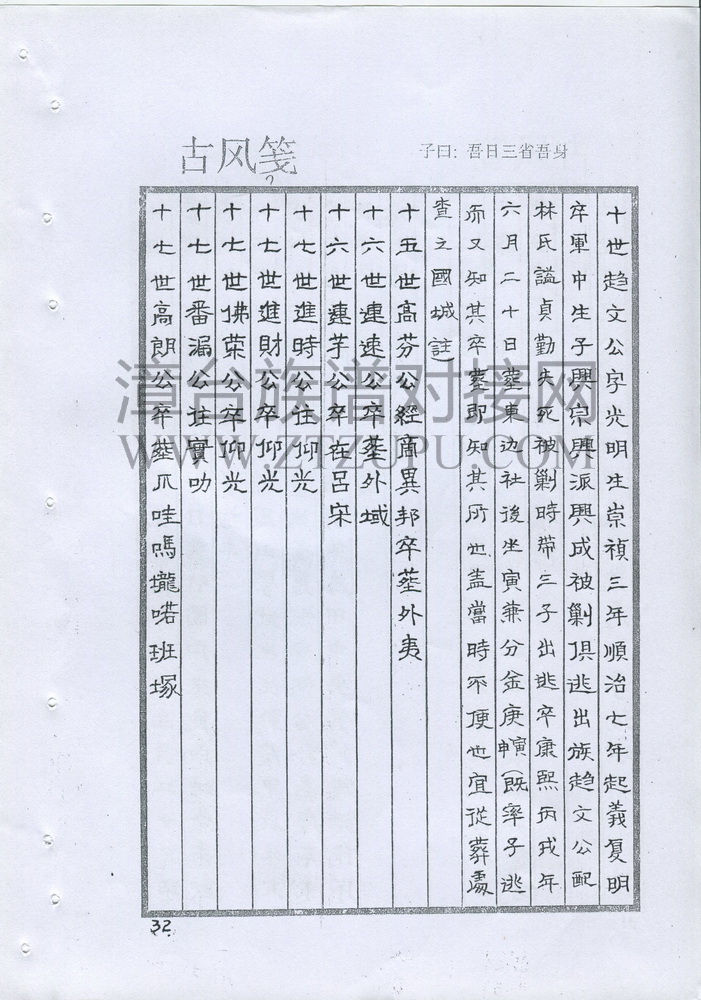 古风笺
子曰：吾日三省吾身
十世趋文公字光明生崇禎三年順治七年起義复明
卒軍中生子興宗興派興成被剿俱逃出族趋文公配
林氏謚貞勤夫死被剿時带三子出逃卒康熙丙戌年
六月二十日葬東边社後坐寅兼分金庚寅(既率子逃
而又知其卒葬即知其所也盖當時不便也宜從葬處
查之國城註
十五世高芬公經商異邦卒葬外夷
十六世連速公卒葬外域
十六世連芋公卒在呂宋
十七世進時公往仰光
十七世進財公卒仰光
十七世佛荣公卒仰光
十七世番漏公往實叻
十七世高朗公卒葬爪哇嗎壠喏班塚
32
漳台族谱对接网
WWW.ZTZUPU.COM